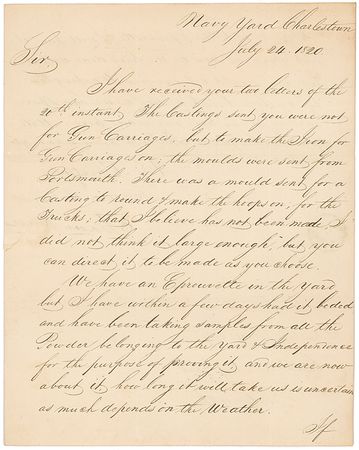 Navy Yard Charlestown
July 24. 1820
Sir
I have received your two letters of the
20th instant. The Castings sent you were not
for Gun Carriages, but to make the Iron for
Gun Carriages on; the moulds were sent from
Portsmouth. There was a mould sent for a
Casting to round & make the hoops on, for the
Trucks; that I believe has not been made, I
did not think it large enough, but you
can derect it to be made as you choose.
We have an Eprouvette in the Yard
but I have within a few days had it beded
and have been taking samples from all the
Powder belonging to the Yard & Independence
for the purpose of proving it, and we are now
about it, how long it will take us is uncertain
as much depends on the Weather.
If